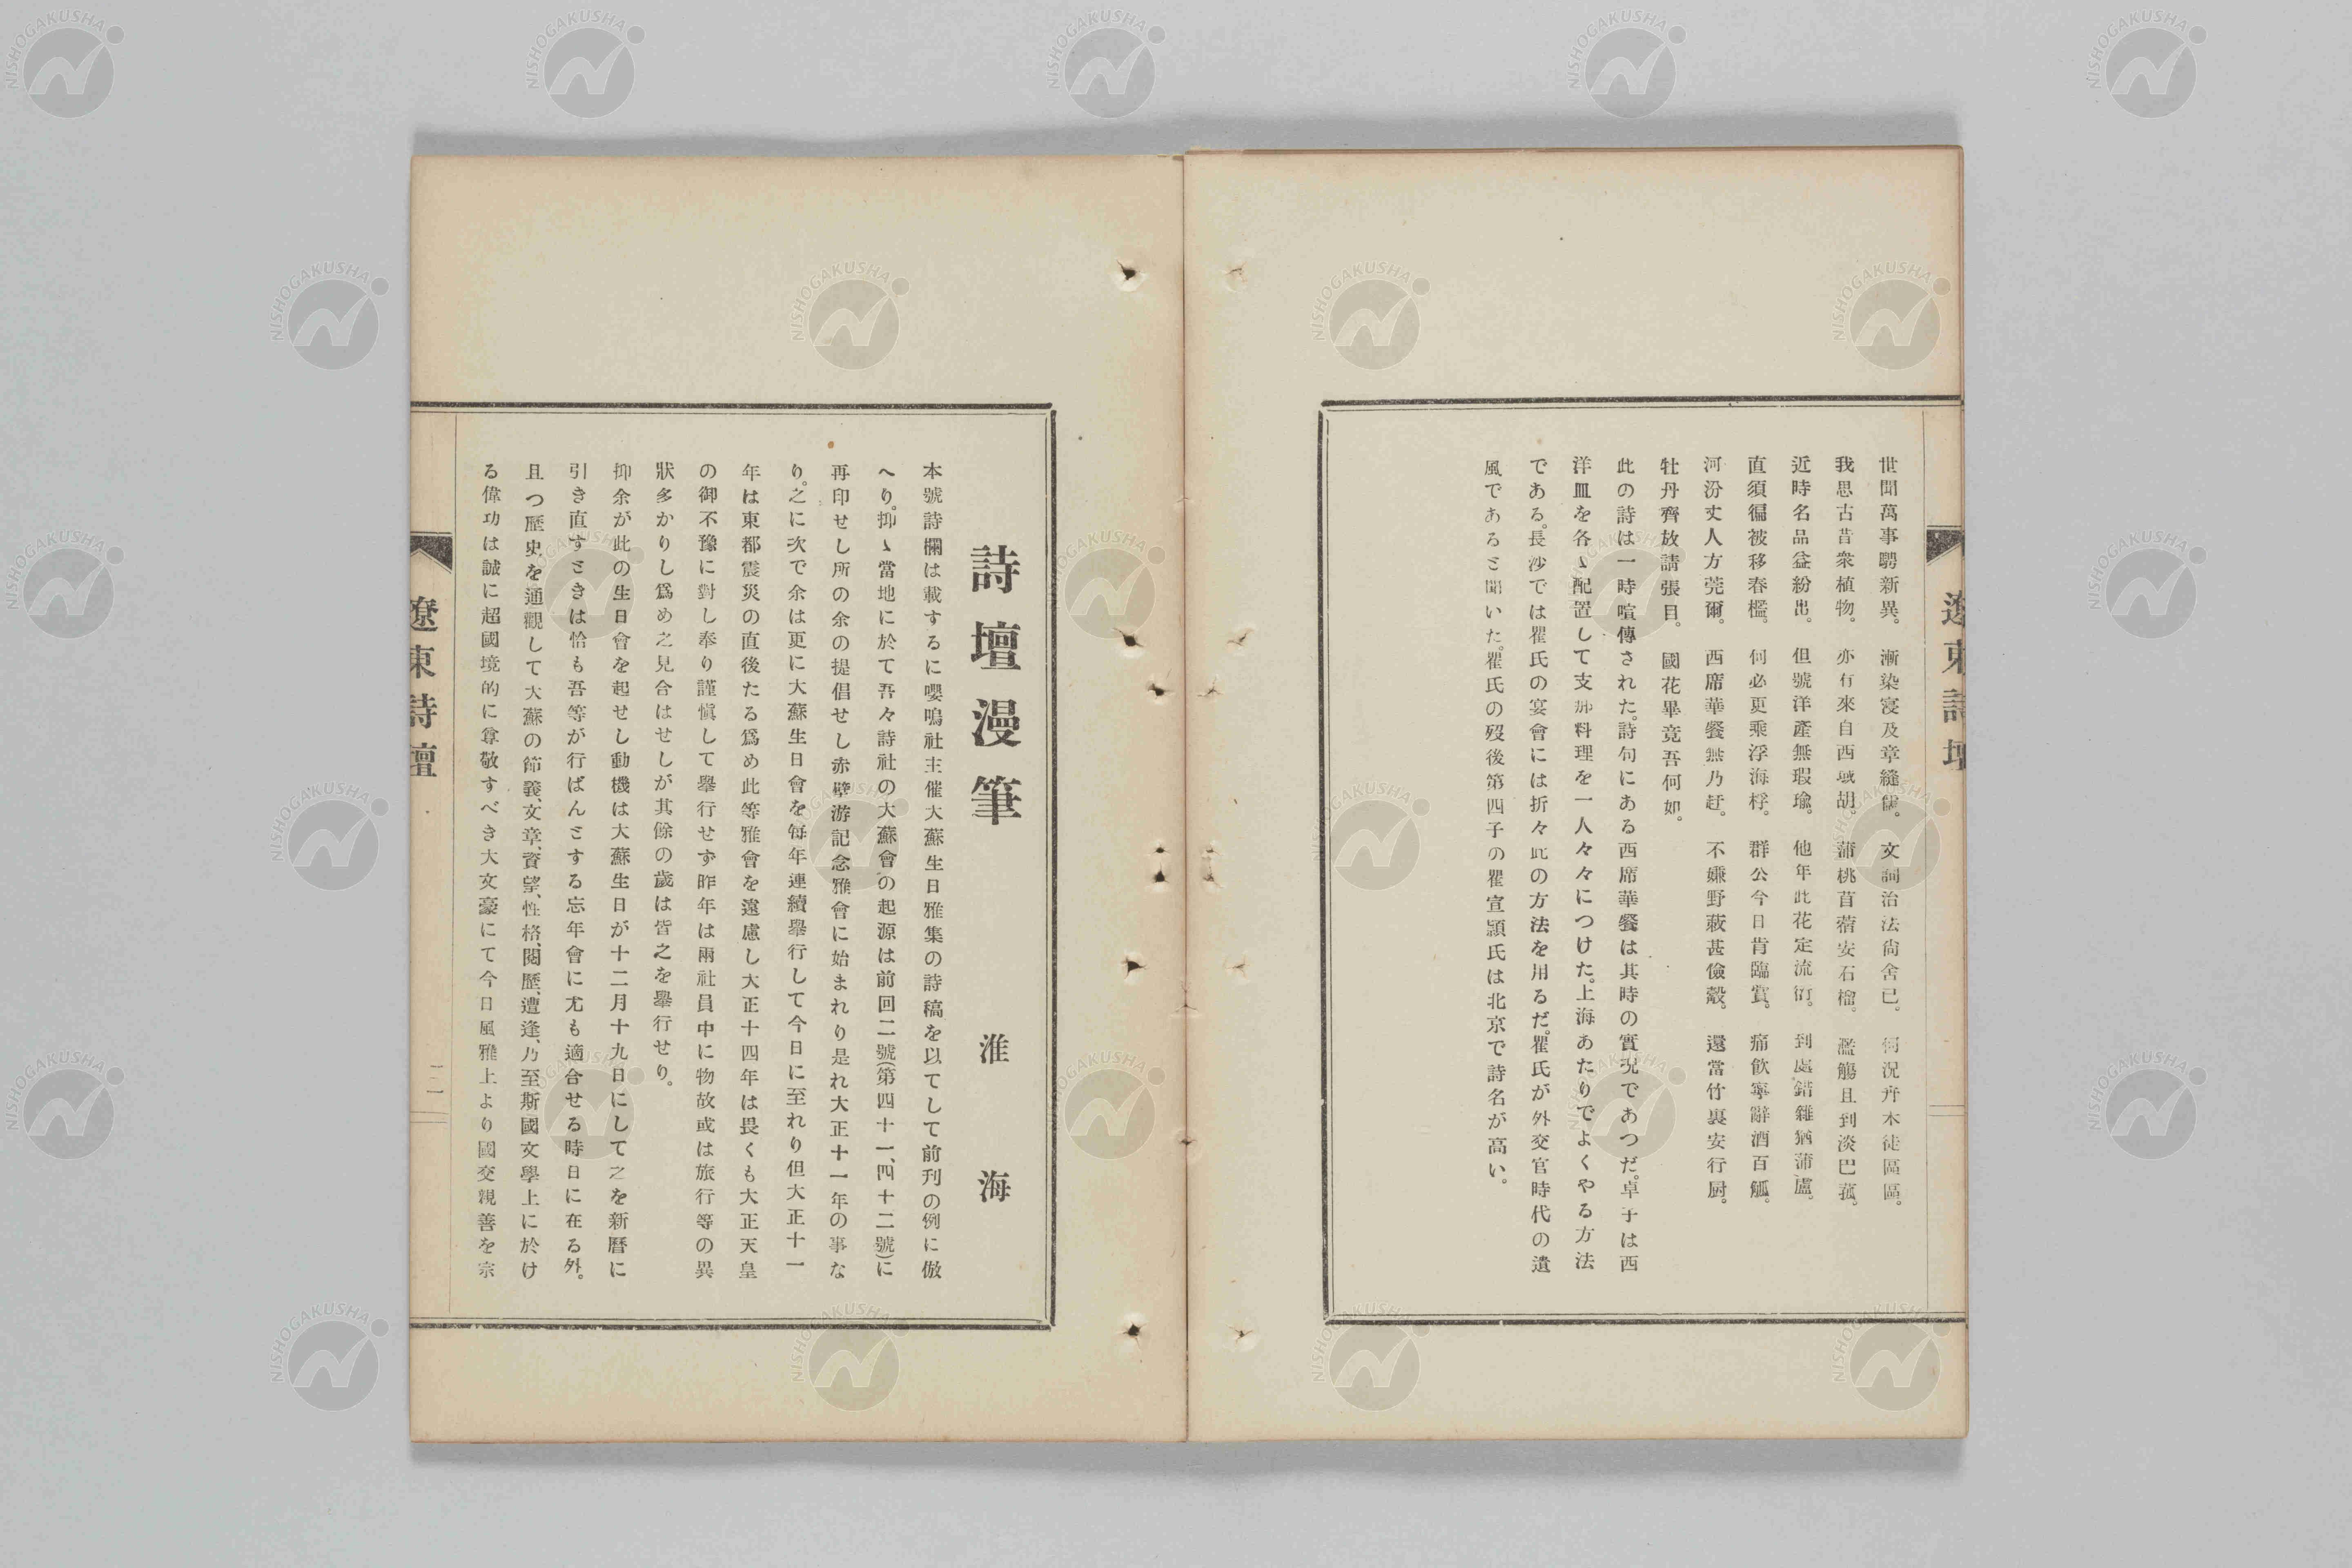 世聞萬事騁新異。漸染寖及章縫儒。文詞治法尙舍已。何況卉木徒區區。
我思古昔衆植物。亦有來自西域胡。蒲桃苜蓿安石榴。濫觴且到淡巴菰。
近時名品益紛出。但號洋產無瑕瑜。他年此花定流衍。到處錯雜猶蒲盧。
直須徧被移春檻。何必更乘浮海桴。群公今日肯臨賞。痛飮寧辭酒百觚。
河汾丈人方莞爾。西席華餐無乃迂。不嫌野蔌甚儉縠。還當竹裏安行厨。
牡丹齊放請張目。國花畢竟吾何如。
此の詩は一時喧傳された。詩句にある西席華餐は其時の實況であつだ。卓子は西
洋皿を各〻配置して支那料理を一人々々につけた。上海あたりでよくやる方法
である。長沙では瞿氏の宴會には折々此の方法を用るだ。瞿氏が外交官時代の遺
風であるご聞いた。瞿氏の歿後第四子の瞿宣穎氏は北京で詩名が高い。
遼東詩壇
詩壇漫筆
淮海
本號詩欄は載するに嚶鳴社主催大蘇生日雅集の詩稿を以てして前刊の例に倣
へり。抑〻當地に於て吾々詩社の大蘇會の起源は前回二號(第四十一、四十二號)に
再印せし所の余の提倡せし赤壁游記念雅會に始まれり是れ大正十一年の事な
り。之に次で余は更に大蘇生日會を每年連續舉行して今日に至れり但大正十一
年は東都震災の直後たる爲め此等雅會を遠慮し大正十四年は畏くも大正天皇
の御不豫に對し奉り謹愼して舉行せず昨年は兩社員中に物故或は旅行等の異
狀多かりし爲め之見合はせしが其餘の歲は皆之を舉行せり。
抑余が此の生日會を起せし動機は大蘇生日が十二月十九日にして之を新曆に
引き直すごきは恰も吾等が行ばんごする忘年會に尤も適合せる時日に在る外。
且つ歷史を通觀して大蘇の節義、文章、資望、性格、閱歷、遭逢、乃至斯國文學上に於け
る偉功は誠に超國境的に尊敬すべき大文豪にて今日風雅上より國交親善を宗
遼東詩壇